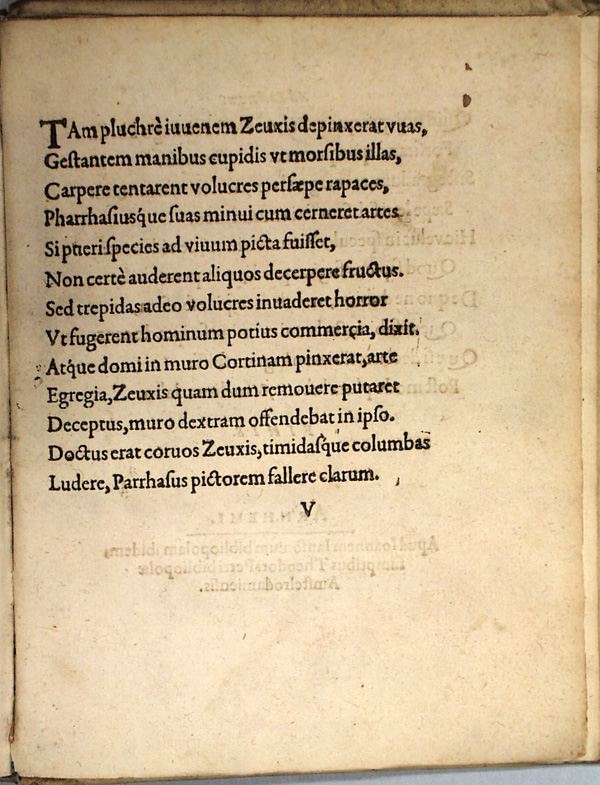 TAm pluchrè iuuenem Zeuxis depinxerat vuas,
Gestantem manibus cupidis vt morsibus illas,
Carpere tentarent volucres persæpe rapaces,
Pharrhasiusq́ue suas minui cum cerneret artes
Si pueri species ad viuum picta fuisset,
Non certè auderent aliquos decerpere fructus.
Sed trepidas adeo volucres inuaderet horror
Vt fugerent hominum potius commercia, dixit.
Atq́ue domi in muro Cortinam pinxerat, arte
Egregia, Zeuxis quam dum remouere putaret
Deceptus, muro dextram offendebat in ipso.
Doctus erat coruos Zeuxis, timidasque columbas
Ludere, Parrhasus pictorem fallere clarum.
V